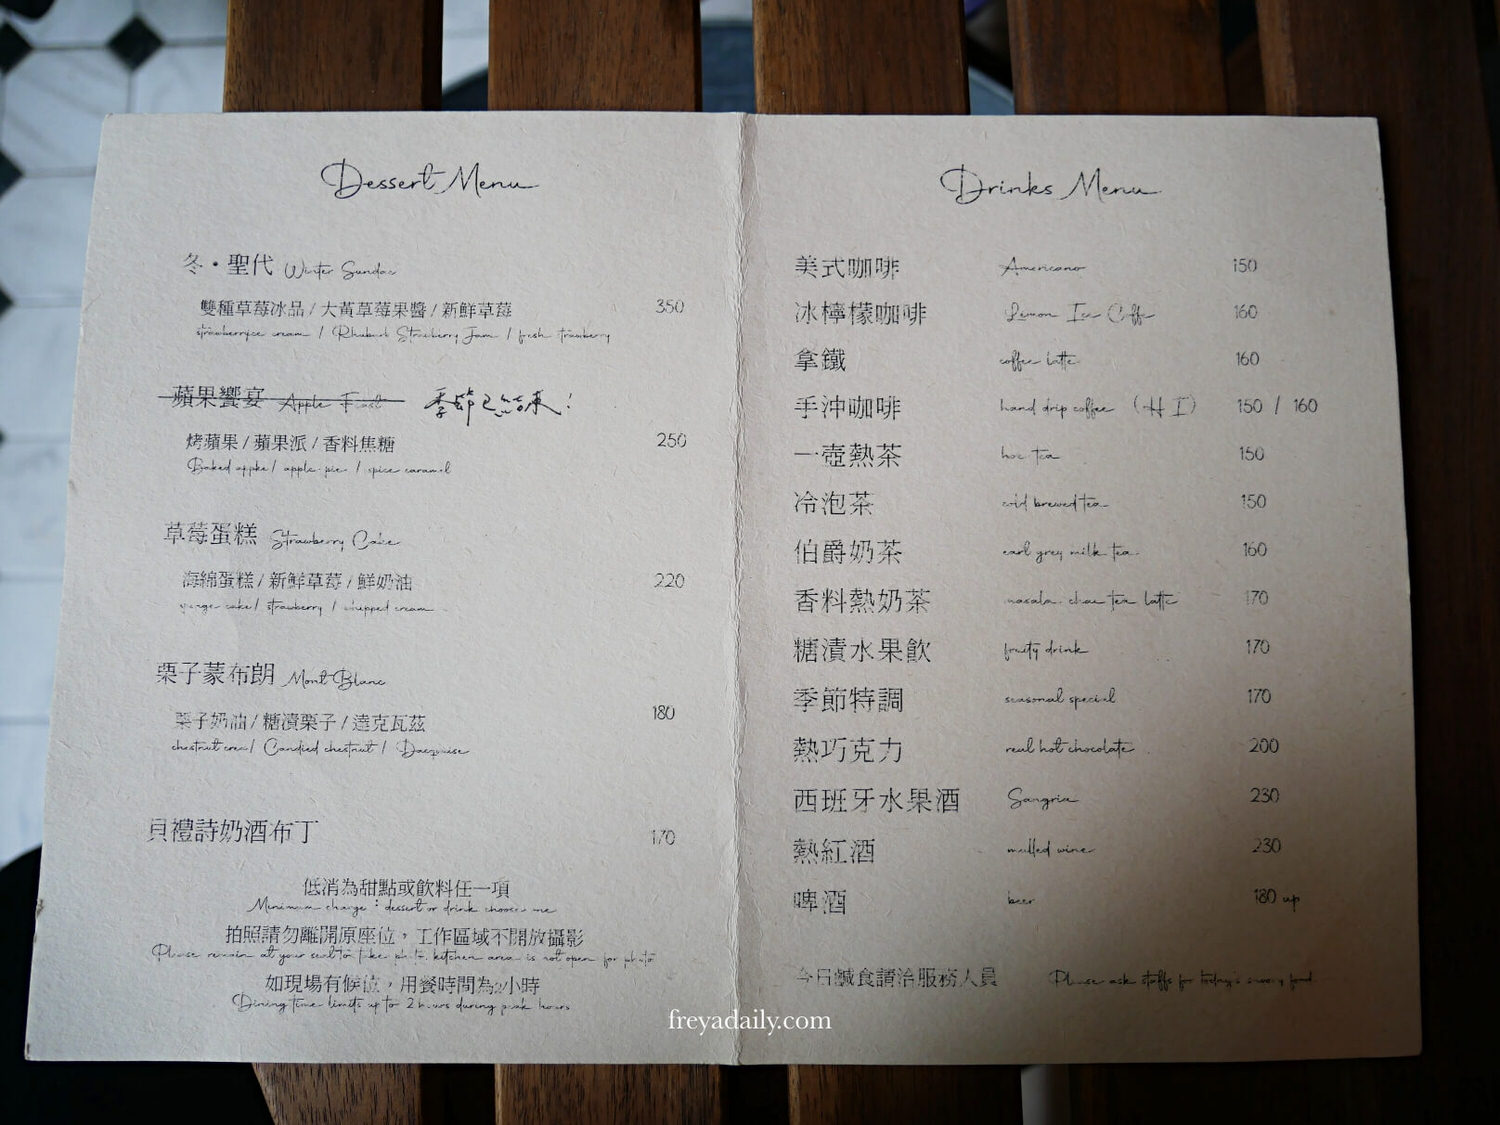 Dessert Menu
冬・聖代 Winter Sundae
雙種草莓冰品 / 大黃草莓果醬 / 新鮮草莓 350
strawberryice cream / Rhubarb Strawberry Jam / fresh strawberry
蘋果饗宴 Apple Feast 季節已結束!
烤蘋果 / 蘋果派 / 香料焦糖 250
Baked apple / apple pie / spice caramel
草莓蛋糕 Strawberry Cake
海綿蛋糕 / 新鮮草莓 / 鮮奶油 220
sponge cake / strawberry / whipped cream
栗子蒙布朗 Mont Blanc
栗子奶油 / 糖漬栗子 / 達克瓦茲 180
chestnut cream / Candied chestnut / Dacquoise
貝禮詩奶酒布丁 170
低消為甜點或飲料任一項
Minimum charge : dessert or drink choose one
拍照請勿離開原座位，工作區域不開放攝影
Please remain at your seat to take photo, kitchen area is not open for photo
如現場有候位，用餐時間為2小時
Dining time limits up to 2 hours during peak hours
Drinks Menu
美式咖啡 Americano 150
冰檸檬咖啡 Lemon Ice Coffe 160
拿鐵 coffee latte 160
手沖咖啡 hand drip coffee (H I) 150 / 160
一壺熱茶 hot tea 150
冷泡茶 cold brewed tea 150
伯爵奶茶 earl grey milk tea 160
香料熱奶茶 masala chai tea latte 170
糖漬水果飲 fruity drink 170
季節特調 seasonal special 170
熱巧克力 real hot chocolate 200
西班牙水果酒 Sangria 230
熱紅酒 mulled wine 230
啤酒 beer 180 up
今日鹹食請洽服務人員 Please ask staffs for today's savory food
freyadaily.com